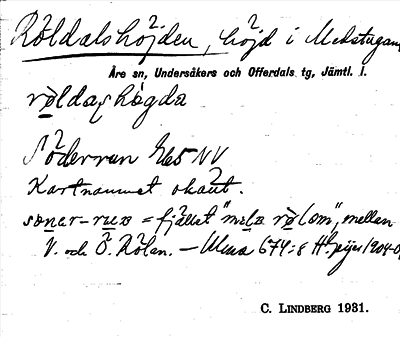 Röldalshöjden, höjd i Medstugan
Åre sn, Undersåkers och Offerdals tg, Jämtl. l.
röldashögda
Söderran G65 NV
Kartnamnet okänt.
sönar-rua = fjället "mela rølom", mellan
V. och Ö. Rölan. – Ulma 674:8 H. Geijer 1904-0
C. LINDBERG 1931.